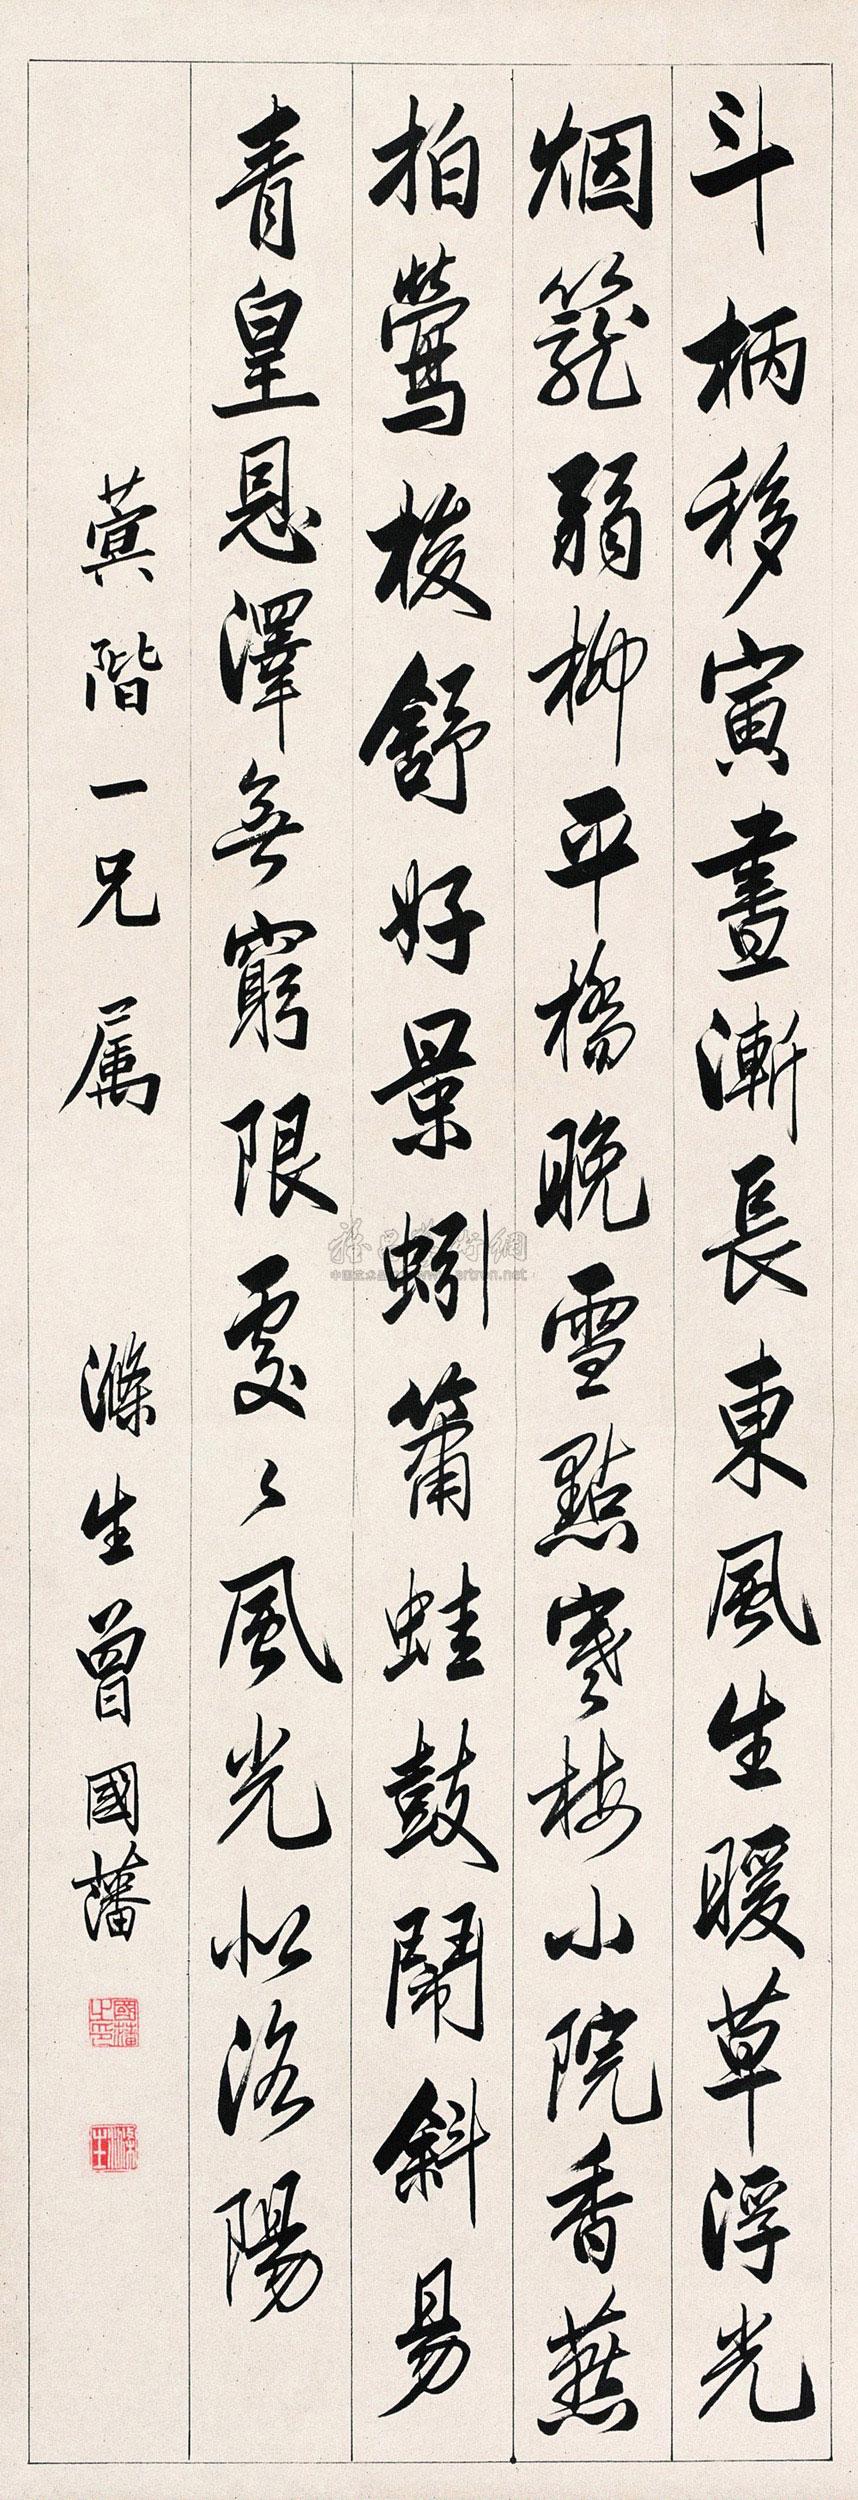 斗柄移寅晝漸長東風生暖草浮光
烟籠弱柳平橋晚雪點寒梅小院香燕
拍鶯梭舒好景蚓簫蛙鼓鬧斜昜
青皇恩澤無窮限處〻風光似洛陽
蓂階一兄属
滌生曾國藩
國藩之印
滌生
中国艺术品 artron.net